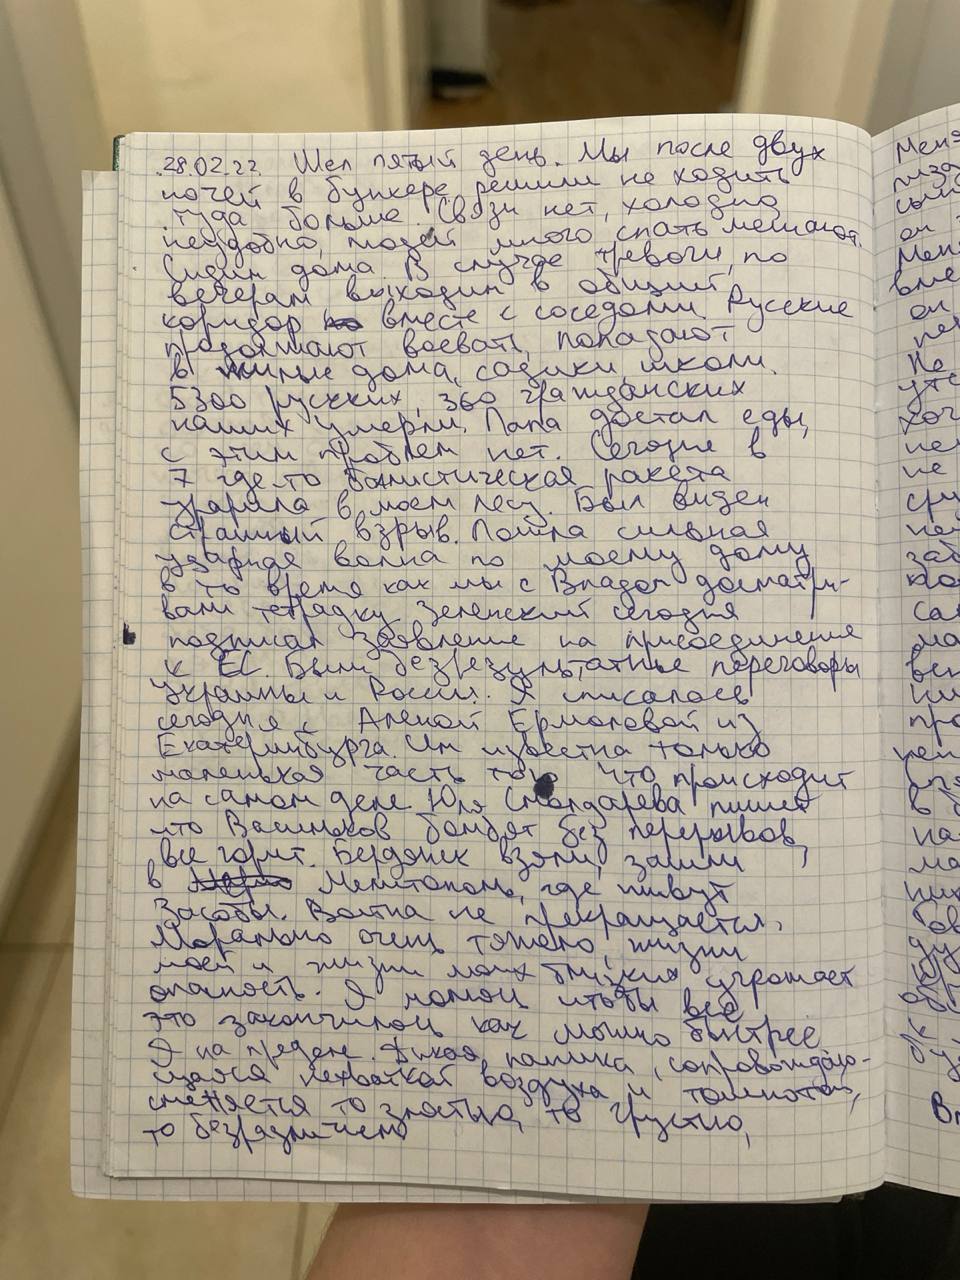 28.02.22 Шел пятый день. Мы после двух
ночей в бункере решили не ходить
туда больше. Связи нет, холодно
неудобно, людей много, спать мешают.
Сидим дома. В случае тревоги, по
вечерам выходим в общий
коридор вместе с соседями. Русские
продолжают воевать, попадают
в жилые дома, садики школы.
5300 русских, 360 гражданских
наших умерли. Папа достал еды,
с этим проблем нет. Сегодня в
7 где-то баллистическая ракета
ударила в моем лесу. Был виден
страшный взрыв. Пошла сильная
ударная волна по моему дому
в то время как мы с Владом досматри-
вали тетрадку. Зеленский сегодня
подписал заявление на присоединение
к ЕС. Были безрезультатные переговоры
Украины и России. Я списалась
сегодня с Аленой Ермоловой из
Екатеринбурга. Им известна только
маленькая часть того что происходит
на самом деле. Юля пишет
что Васильков бомбят без перерывов,
все горит. Бердянск взяли, зашли
в Мелитополь, где живут
Засобы. Война не прекращается.
Морально очень тяжело, жизни
моей и жизни моих близких угрожает
опасность. Я молюсь чтобы всё
это закончилось как можно быстрее
Я на пределе. Дикая паника, сопровождаю-
щаяся нехваткой воздуха и тошнотой,
сменяется то злостью, то грустью,
то безразличием
Меня
он
вме
он
Не
хоч
не
не
сам
про
в
на